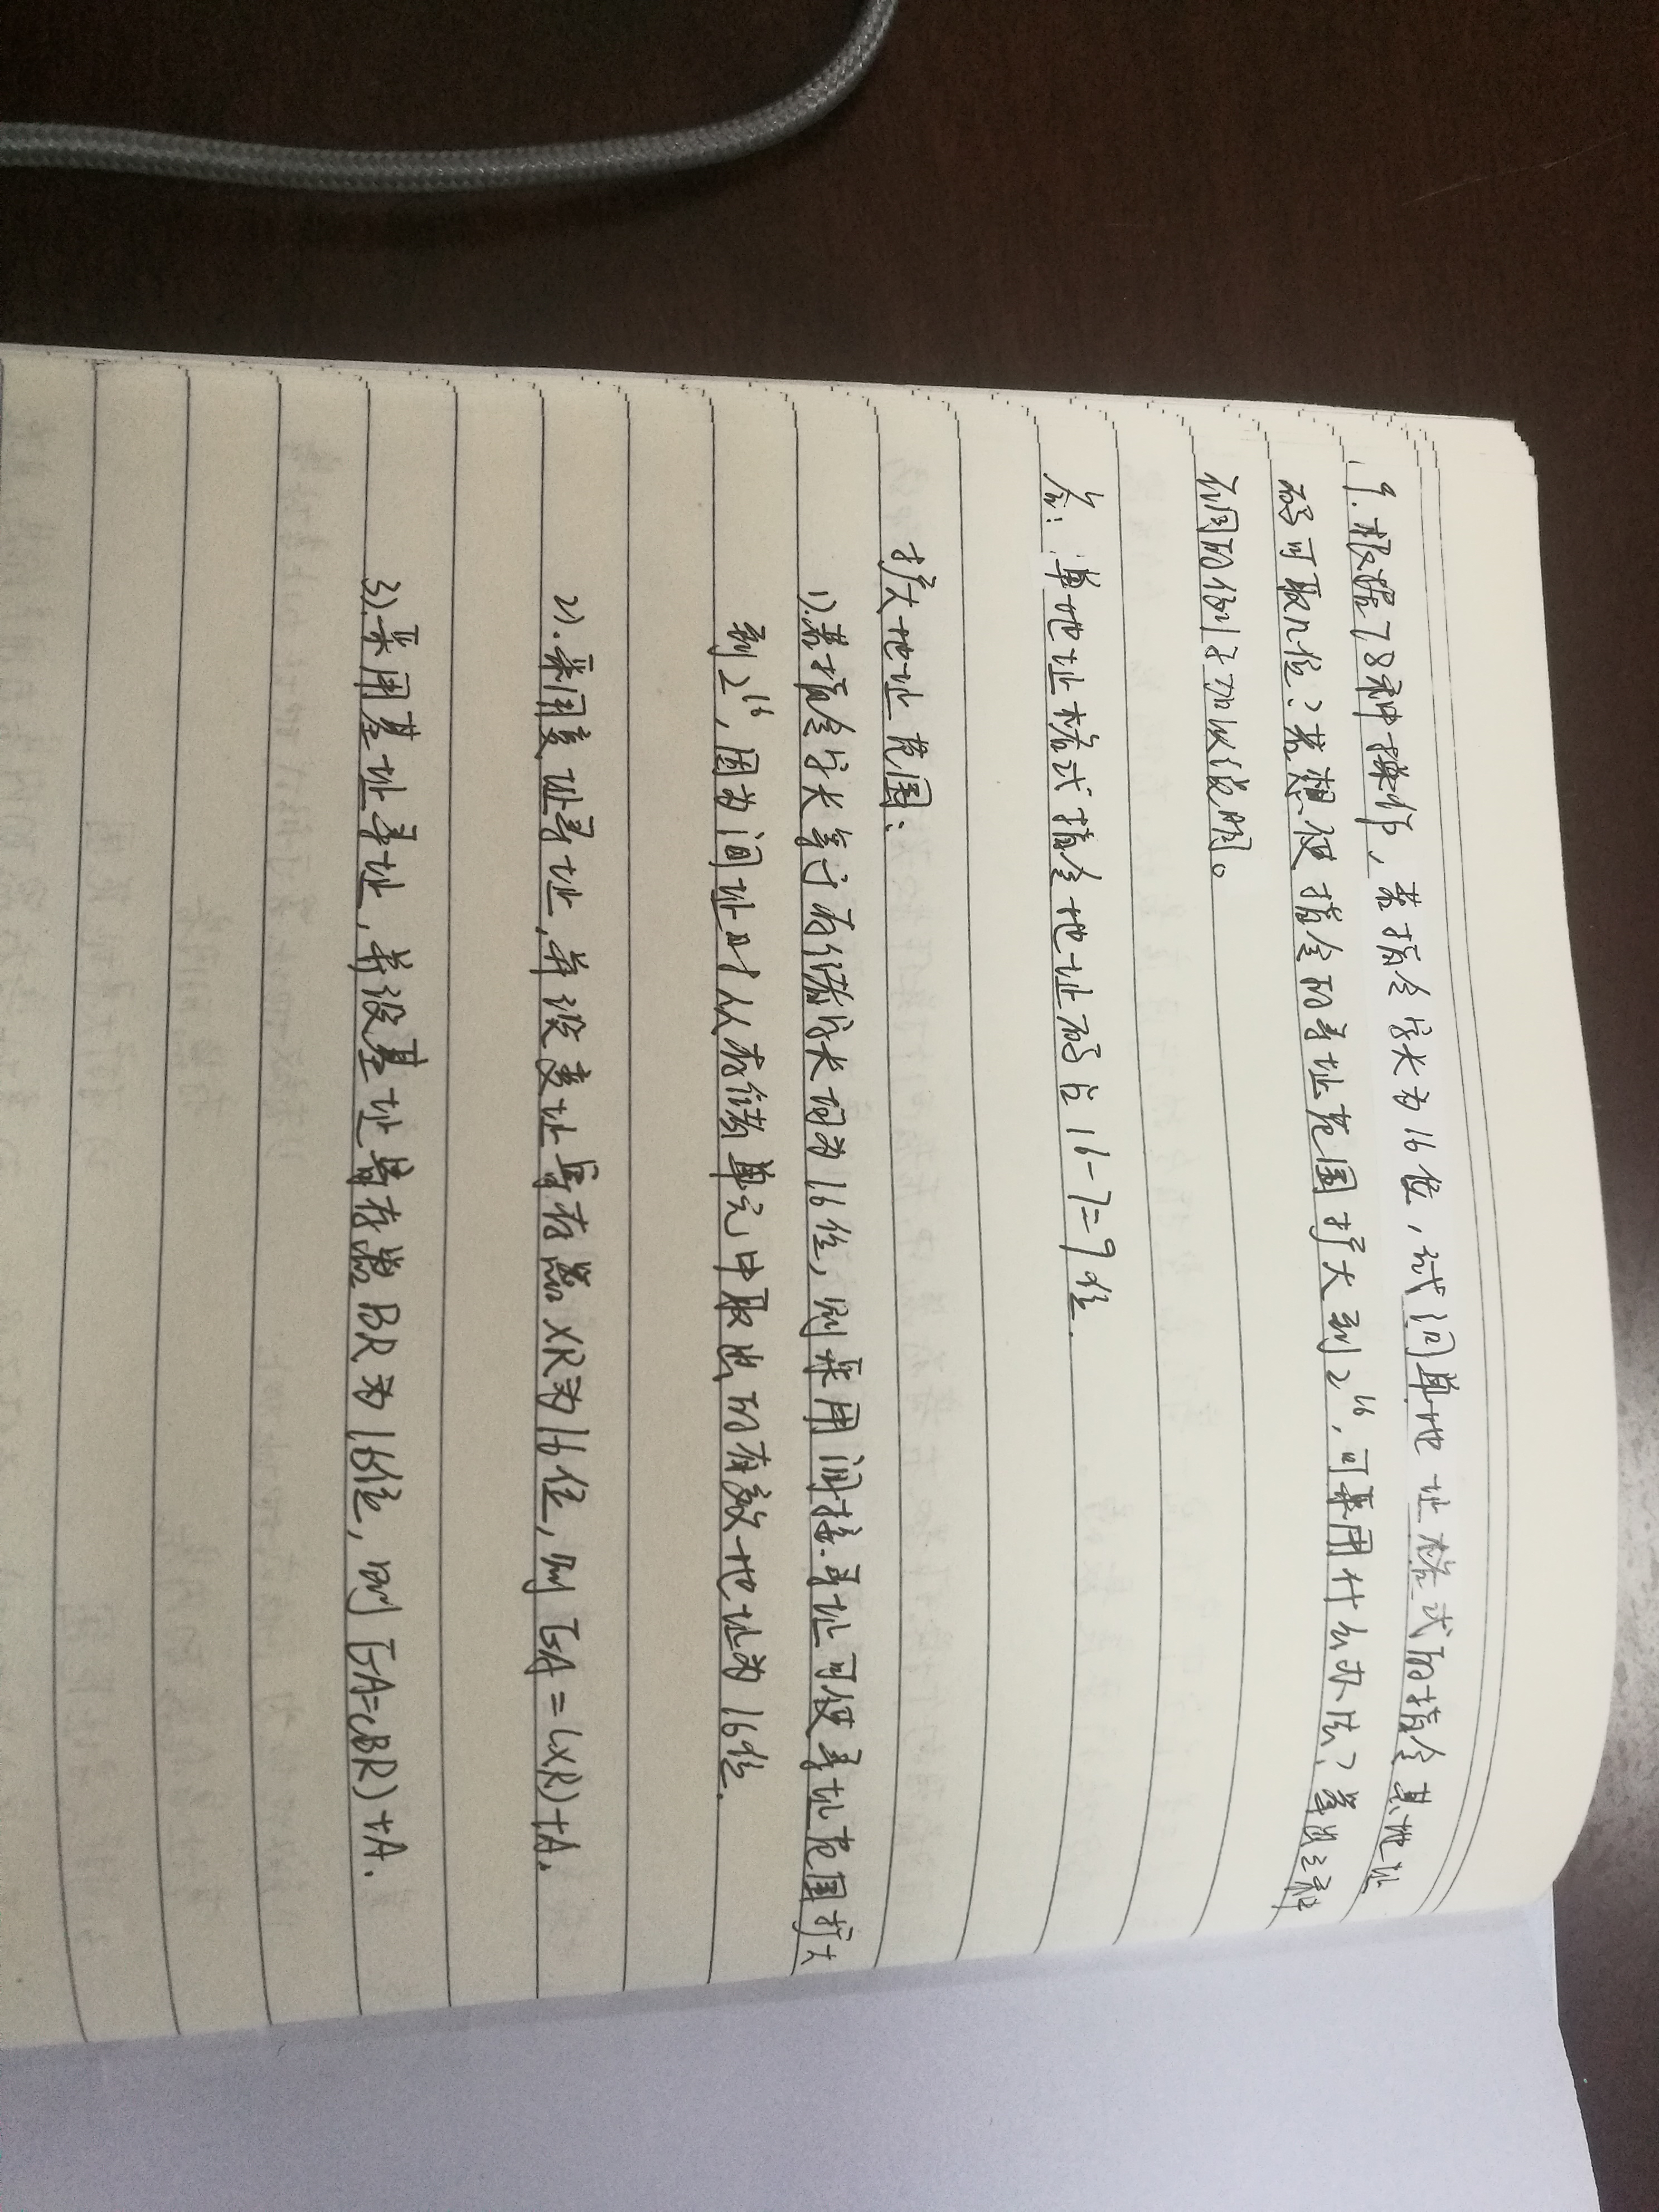 1.9.根据78种操作，若指令字长为16位，试问单地址格式的指令其地址
码可取几位？若想使指令的寻址范围扩大到2¹⁶，可采用什么办法？举出三种
不同的例子加以说明。
答：单地址格式指令地址码占16-7=9位.
扩大地址范围：
1).若指令字长等于存储字长均为16位，则采用间接寻址可使寻址范围扩大
到2¹⁶，因为间址时从存储单元中取出的有效地址为16位.
2).采用变址寻址,并设变址寄存器XR为16位,则EA=(XR)+A.
3).采用基址寻址,并设基址寄存器BR为16位,则EA=(BR)+A.